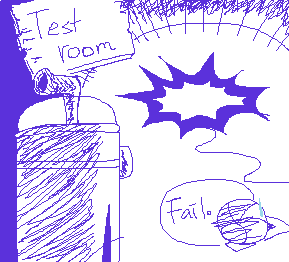 Test
room
Fail.